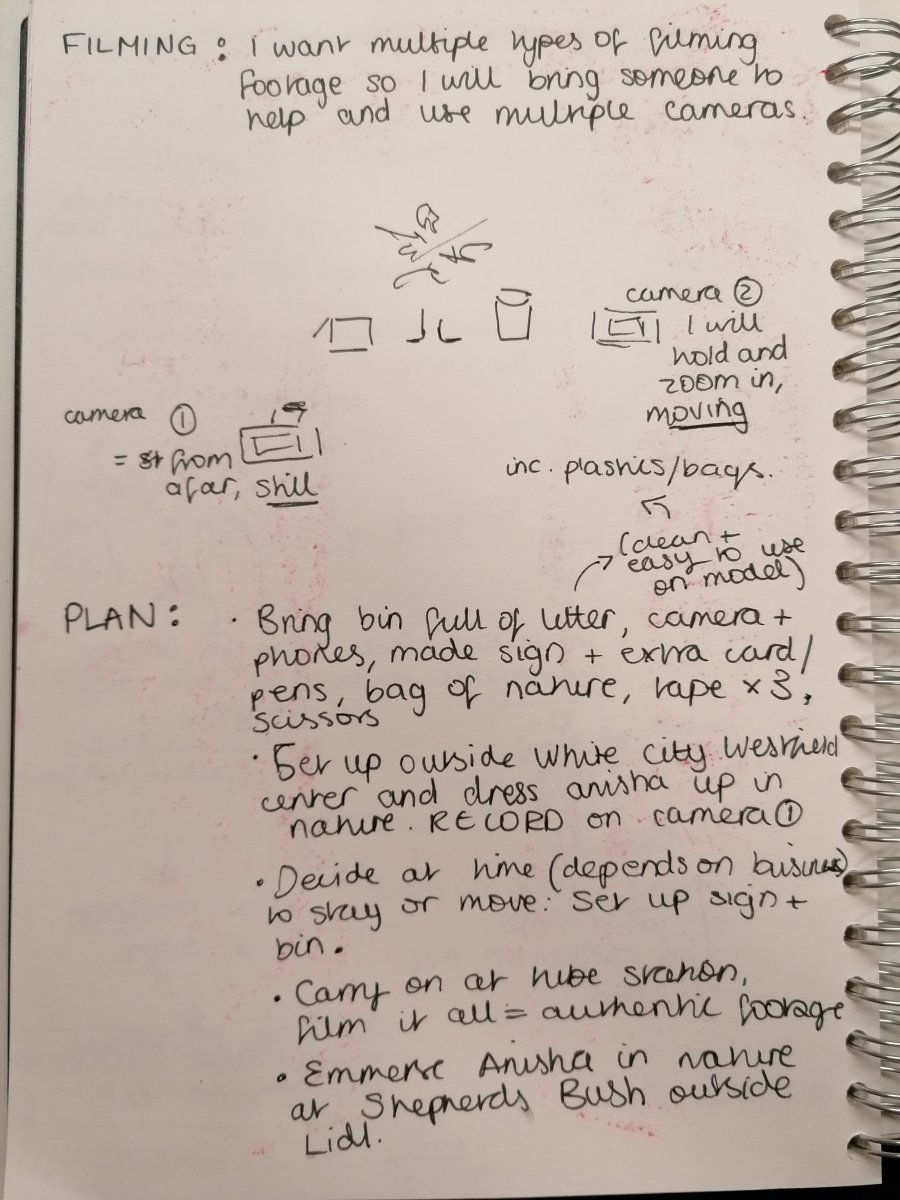 FILMING : I want multiple types of filming
footage so I will bring someone to
help and use multiple cameras.
camera ②
I will
hold and
zoom in,
moving
camera ①
= from
afar, still
inc. plastics/bags.
(clean +
easy to use
on model)
PLAN : · Bring bin full of litter, camera +
phones, made sign + extra card/
pens, bag of nature, tape x 3,
scissors
· Set up outside White City Westfield
center and dress anisha up in
nature. RECORD on camera ①
· Decide at time (depends on business)
to stay or move: Set up sign +
bin.
· Carry on at tube station,
film it all = authentic footage
· Emmerse Anisha in nature
at Shepherds Bush outside
Lidl.